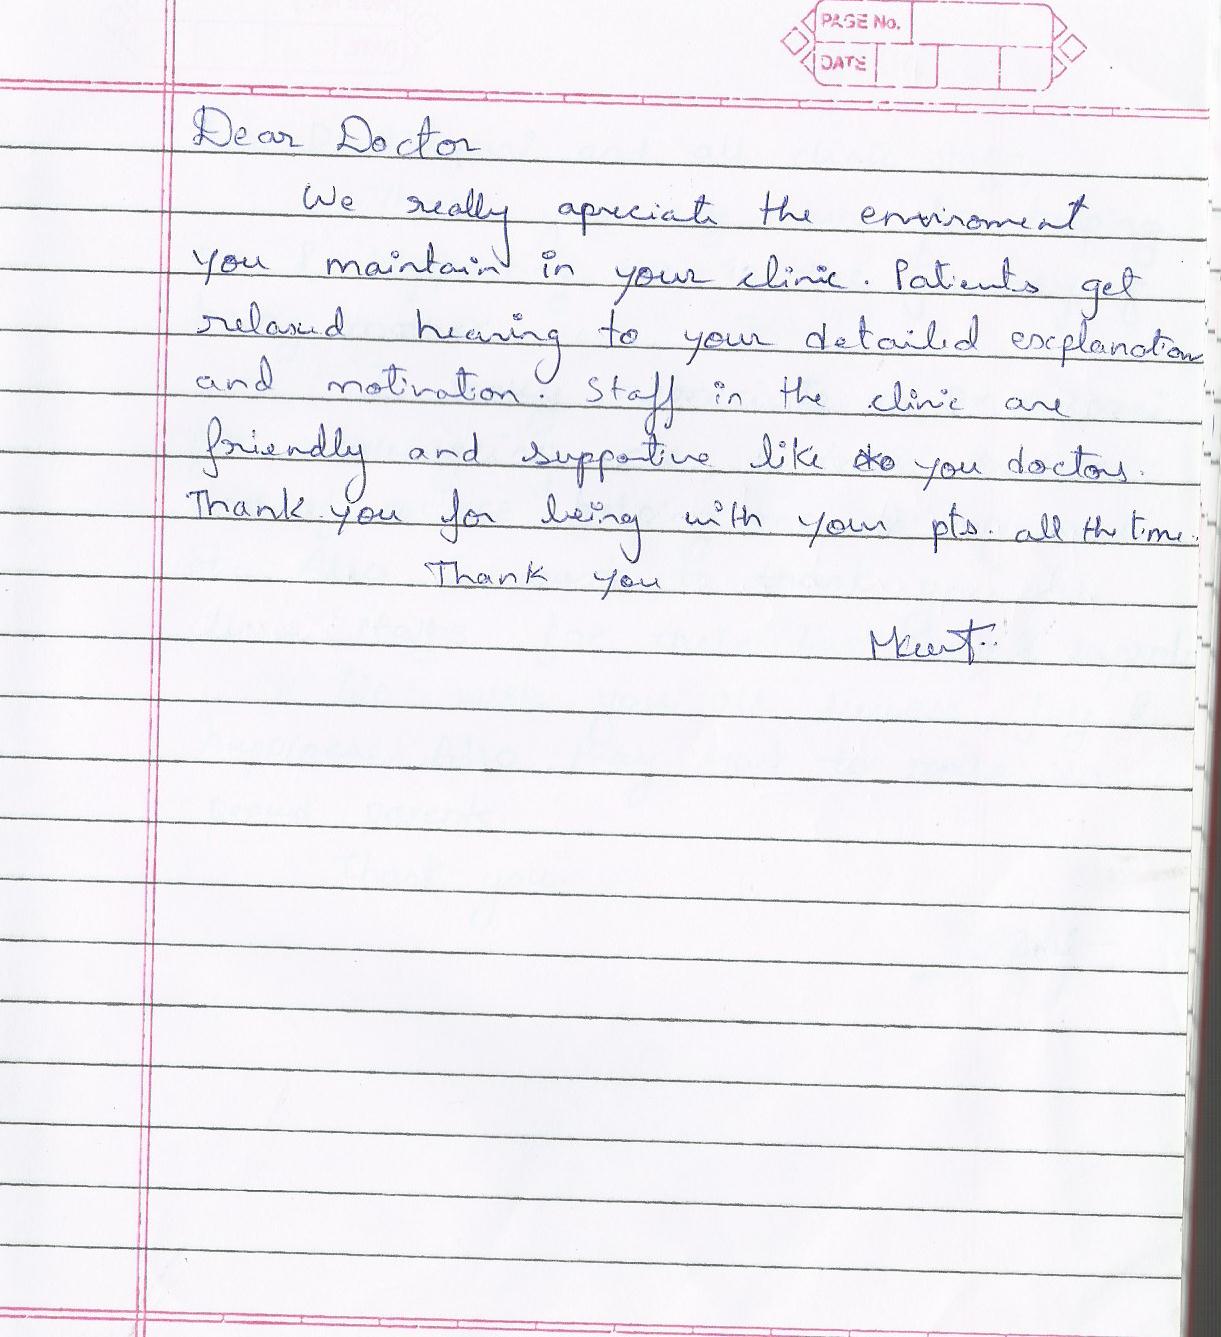 PAGE No.
DATE
Dear Doctor
We really apreciate the enviroment
you maintain in your clinic. Patients get
relaxed hearing to your detailed explanation
and motivation. Staff in the clinic are
friendly and supportive like you doctors.
Thank you for being with your pts. all the time.
Thank you